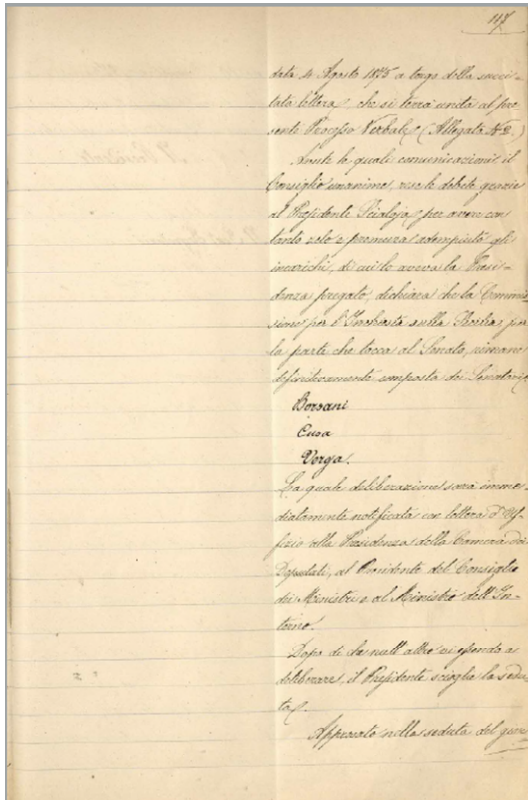 117
data 4 Agosto 1875 a tergo della succi-
tata lettera, che si terrà unita al pre
sente Processo Verbale (Allegato N° 2.)
Avute le quali comunicazioni il
Consiglio unanime, rese le debite grazie
al Presidente Scialoja, per avere con
tanto zelo e premura adempiuto gli
incarichi, di cui lo aveva la Presi-
denza pregato, dichiara che la Commis-
sione per l'Inchiesta sulla Sicilia, per
la parte che tocca al Senato, rimane
definitivamente composta dei Senatori
Borsani
Cusa
Verga.
La quale deliberazione sarà imme-
diatamente notificata con lettera d'Uf-
fizio alla Presidenza della Camera dei
Deputati, al Presidente del Consiglio
dei Ministri e al Ministro dell'In-
terno.
Dopo di che null'altro essendovi a
deliberare, il Presidente scioglie la sedu-
ta.
Approvato nella seduta del